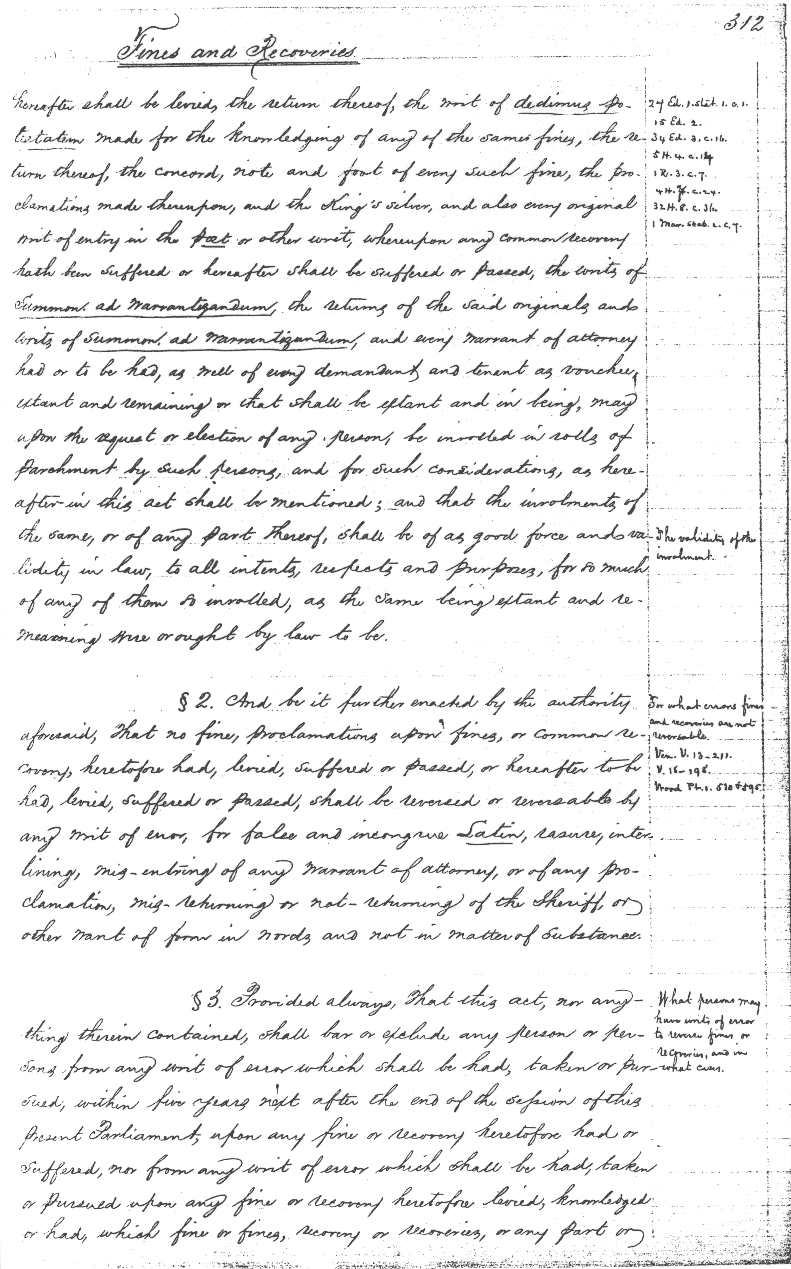 312
Fines and Recoveries.
hereafter shall be levied, the return thereof, the writ of dedimus po-
testatem made for the knowledging of any of the same fines, the re-
turn thereof, the concord, note and foot of every such fine, the pro-
clamations made thereupon, and the King's silver, and also every original
writ of entry in the post or other writ, whereupon any common recovery
hath been suffered or hereafter shall be suffered or passed, the writs of
Summon. ad Warrantizandum, the returns of the said originals and
writs of Summon. ad Warrantizandum, and every warrant of attorney
had or to be had, as well of every demandant and tenant as vouchee,
extant and remaining or that shall be extant and in being, may
upon the request or election of any person, be inrolled in rolls of
parchment by such persons, and for such considerations, as here-
after in this act shall be mentioned; and that the inrolments of
the same, or of any part thereof, shall be of as good force and va-
lidity in law, to all intents, respects and purposes, for so much
of any of them so inrolled, as the same being extant and re-
maining were or ought by law to be.
24 Ed. 1. stat. 1. c. 1.
15 Ed. 2.
34 Ed. 3. c. 16.
5 H. 4. c. 14
1 R. 3. c. 7.
4 H. 7. c. 24.
32 H. 8. c. 36.
1 Mar. stat. 2. c. 7.
The validity of the
inrolment.
§ 2. And be it further enacted by the authority
aforesaid, That no fine, proclamations upon fines, or common re-
covery, heretofore had, levied, suffered or passed, or hereafter to be
had, levied, suffered or passed, shall be reversed or reversable by
any writ of error, for false and incongrue Latin, rasure, inter-
lining, mis-entring of any warrant of attorney, or of any pro-
clamation, mis-returning or not-returning of the Sheriff, or
other want of form in words and not in matter of substance.
For what errors fines
and recoveries are not
reversable.
Ven. V. 13-211.
V. 18-198.
Wood Pt. 1. 510 & 895.
§ 3. Provided always, That this act, nor any-
thing therein contained, shall bar or exclude any person or per-
sons from any writ of error which shall be had, taken or pur-
sued, within five years next after the end of the session of this
present Parliament, upon any fine or recovery heretofore had or
suffered, nor from any writ of error which shall be had, taken
or pursued upon any fine or recovery heretofore levied, knowledged
or had, which fine or fines, recovery or recoveries, or any part or
What persons may
have writs of error
to reverse fines or
recoveries, and in
what cases.